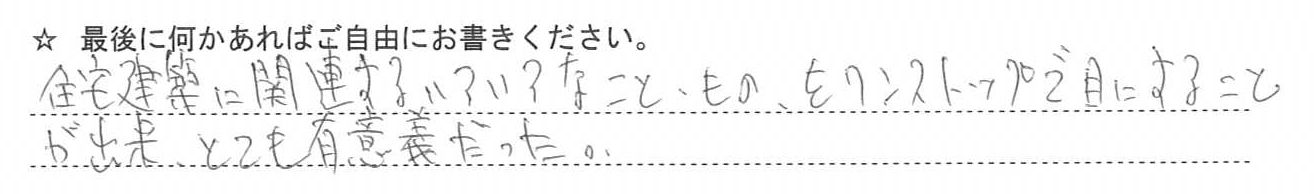 ☆ 最後に何かあればご自由にお書きください。
住宅建築に関連するいろいろなこと、もの、をワンストップで目にすること
が出来、とても有意義だった。